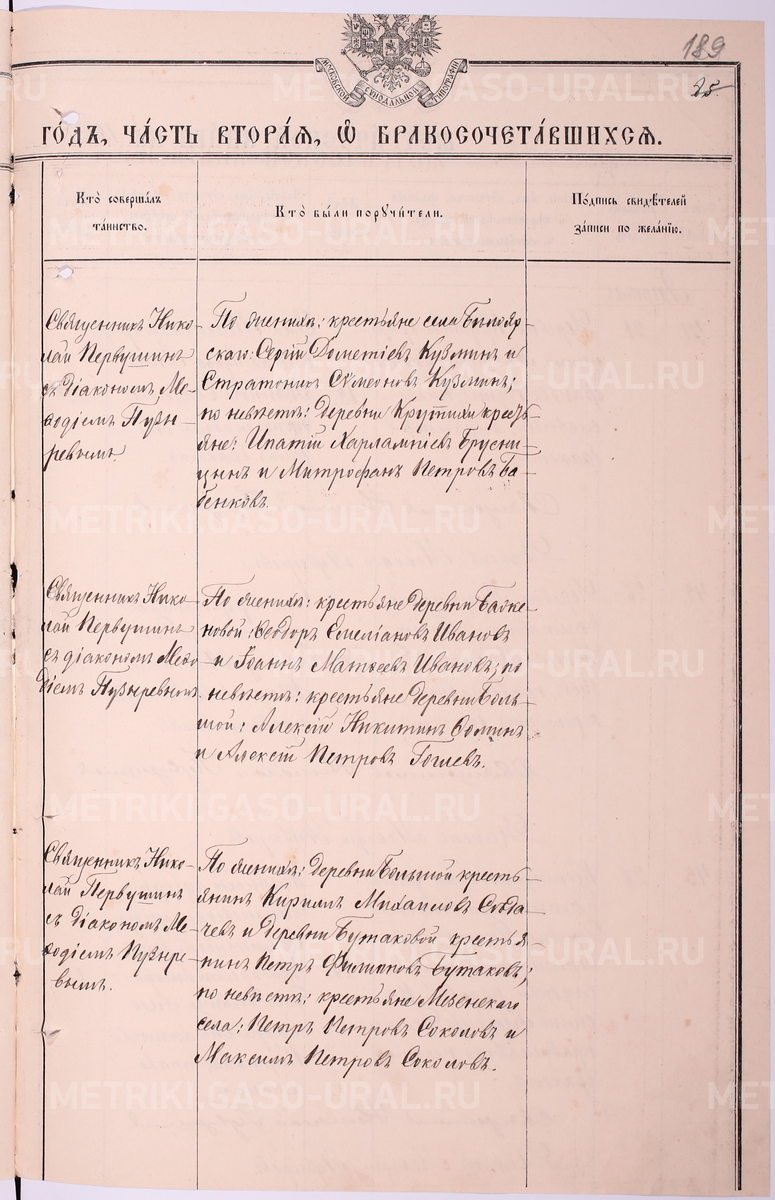 189
25
МОСКОВСКОЙ СѴНОДАЛЬНОЙ ТИПОГРАФІИ
ГО́ДЪ, ЧА́СТЬ ВТОРА́Я, Ѽ БРАКОСОЧЕТА́ВШИХСЯ.
Кто̀ соверша́лъ
та́инство.
Кто̀ бы́ли порꙋчи́тели.
По́дпись свидѣ́телей
за́писи по жела́нїю.
Священникъ Нико-
лай Первушинъ
съ діакономъ Ме-
ѳодіемъ Пузы-
ревымъ.
По женихѣ: крестьяне села Бѣлояр-
скаго: Сергій Дометіевъ Кузминъ и
Стратоникъ Сѵмеоновъ Кузминъ;
по невѣстѣ: деревни Крутихи кресть-
яне: Ипатій Харлампіевъ Брусни-
цынъ и Митрофанъ Петровъ Ба-
бенковъ.
Священникъ Нико-
лай Первушинъ
съ діакономъ Меѳо
діемъ Пузыревымъ.
По женихѣ: крестьяне деревни Баже-
новой: Ѳеодоръ Емеліановъ Ивановъ
и Іоаннъ Матѳеевъ Ивановъ; по
невѣстѣ: крестьяне деревни Боль-
шой: Алексій Никитинъ Ѳоминъ
и Алексій Петровъ Гоглевъ.
Священникъ Нико-
лай Первушинъ
съ діакономъ Ме-
ѳодіемъ Пузыре-
вымъ.
По женихѣ: деревни Большой кресть-
янинъ Кириллъ Михаиловъ Собда-
чевъ и деревни Бутаковой крестья-
нинъ Петръ Филиповъ Бутаковъ;
по невѣстѣ: крестьяне Мезенскаго
села: Петръ Петровъ Соколовъ и
Максимъ Петровъ Соколовъ.
METRIKI.GASO-URAL.RU